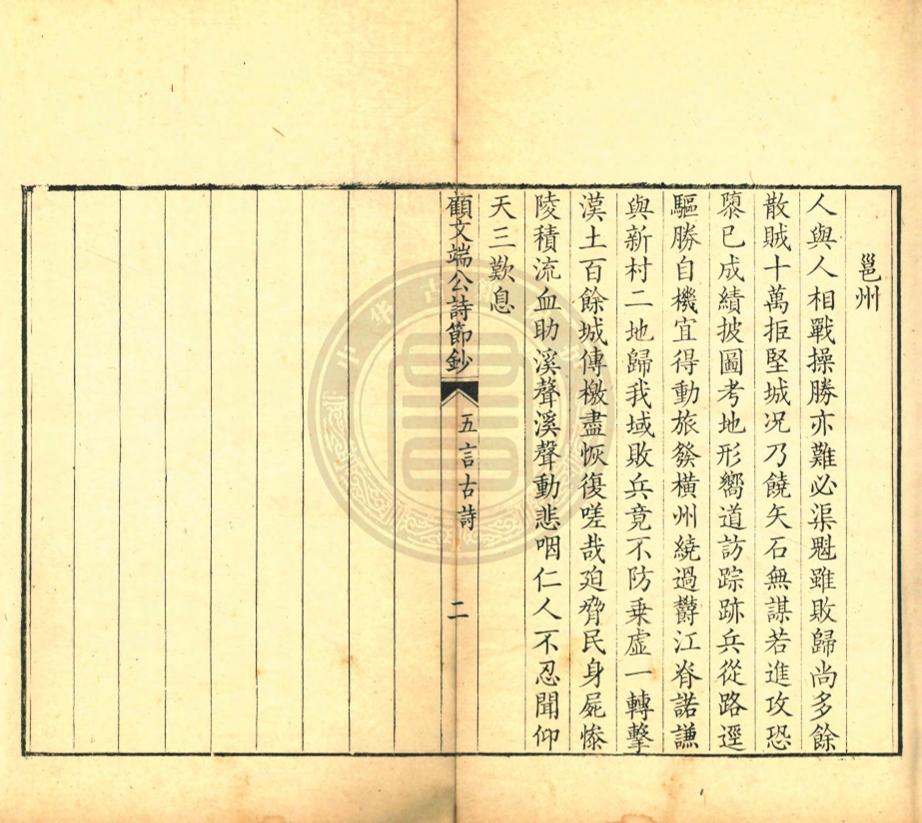 邕州
人與人相戰操勝亦難必渠魁雖敗歸尚多餘
散賊十萬拒堅城况乃饒矢石無謀若進攻恐
隳已成績披圖考地形嚮道訪踪跡兵從路逕
驅勝自機宜得動旅發橫州繞過欝江脊諾謙
與新村二地歸我域敗兵竟不防乗虛一轉擊
漢土百餘城傳檄盡恢復嗟哉廹脅民身屍慘
陵積流血助溪聲溪聲動悲咽仁人不忍聞仰
天三歎息
顧文端公詩節鈔
五言古詩
二